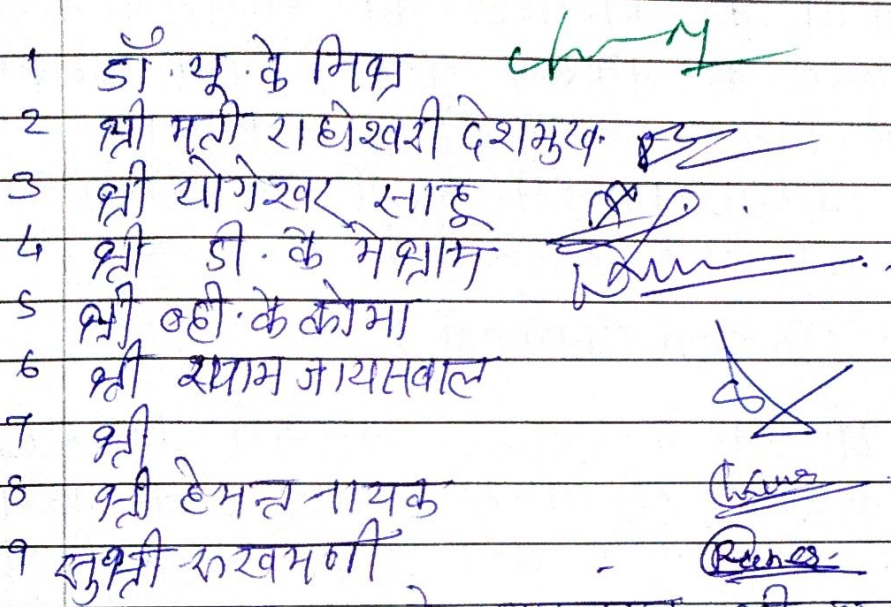 1 डॉ. यू. के मिश्र
2 श्री मती राधेश्वरी देशमुख.
3 श्री योगेश्वर साहू
4 श्री डी. के मेश्राम
5 श्री व्ही. के कोमा
6 श्री श्याम जायसवाल
7 श्री
8 श्री हेमन्त नायक
9 सुश्री रुखमणी -